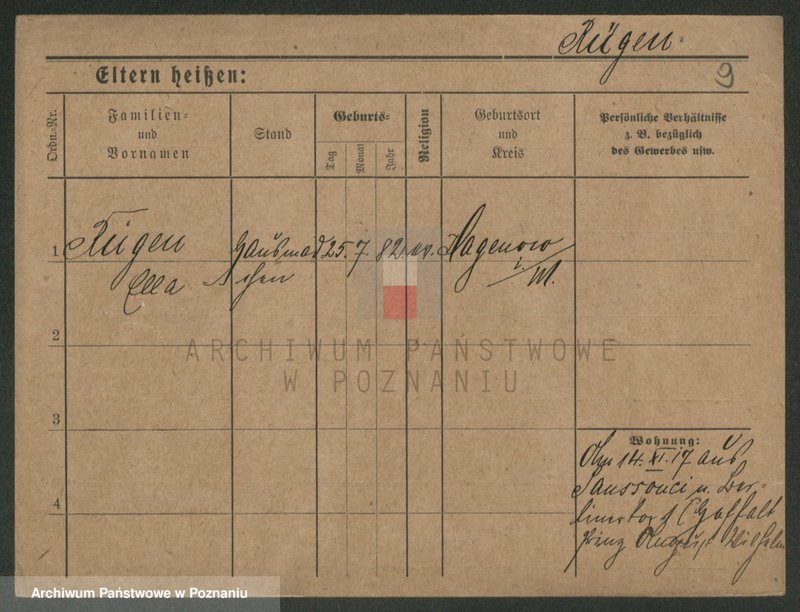 Rügen
Eltern heißen:
9
Ordn.-Nr.
Familien-
und
Vornamen
Stand
Geburts-
Tag
Monat
Jahr
Religion
Geburtsort
und
Kreis
Persönliche Verhältnisse
z. B. bezüglich
des Gewerbes usw.
1 Rügen Hausmäd 25. 7. 82. ev. Hagenow
Ella chen i/M.
2
ARCHIWUM PAŃSTWOWE
W POZNANIU
3
Wohnung:
Am 14.XI.17 aus
Sanssouci n. Ber-
Prinz August Wilhelm
4
Archiwum Państwowe w Poznaniu